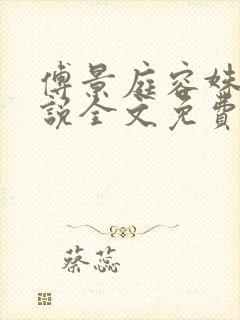 傅景庭容姝
說全文免費
蔡蕊